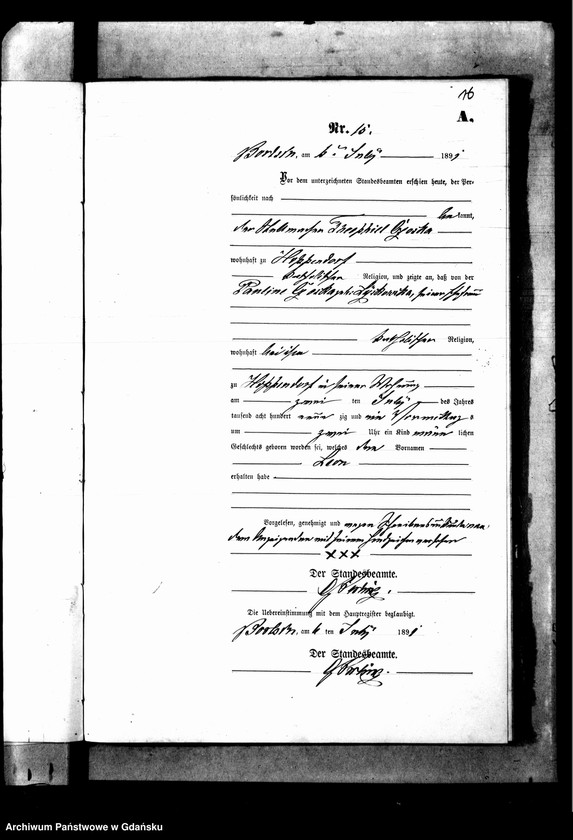 16
A.
Nr. 15.
am 6ten July 1891
Vor dem unterzeichneten Standesbeamten erschien heute, der Per-
sönlichkeit nach
bekannt,
der Theophiel
wohnhaft zu Hoppendorf
katholischer Religion, und zeigte an, daß von der
Pauline geb. seiner Ehefrau
katholischer Religion,
wohnhaft bei ihm
zu Hoppendorf in seiner Wohnung
am zwei ten July des Jahres
tausend acht hundert neun zig und ein Vormittags
um zwei Uhr ein Kind männlichen
Geschlechts geboren worden sei, welches den Vornamen
Leon
erhalten habe
Vorgelesen, genehmigt und wegen Schreibensunkunde von
dem Anzeigenden mit seinem Handzeichen versehen
XXX
Der Standesbeamte.
Die Uebereinstimmung mit dem Hauptregister beglaubigt.
am 6 ten July 1891
Der Standesbeamte.
Archiwum Państwowe w Gdańsku